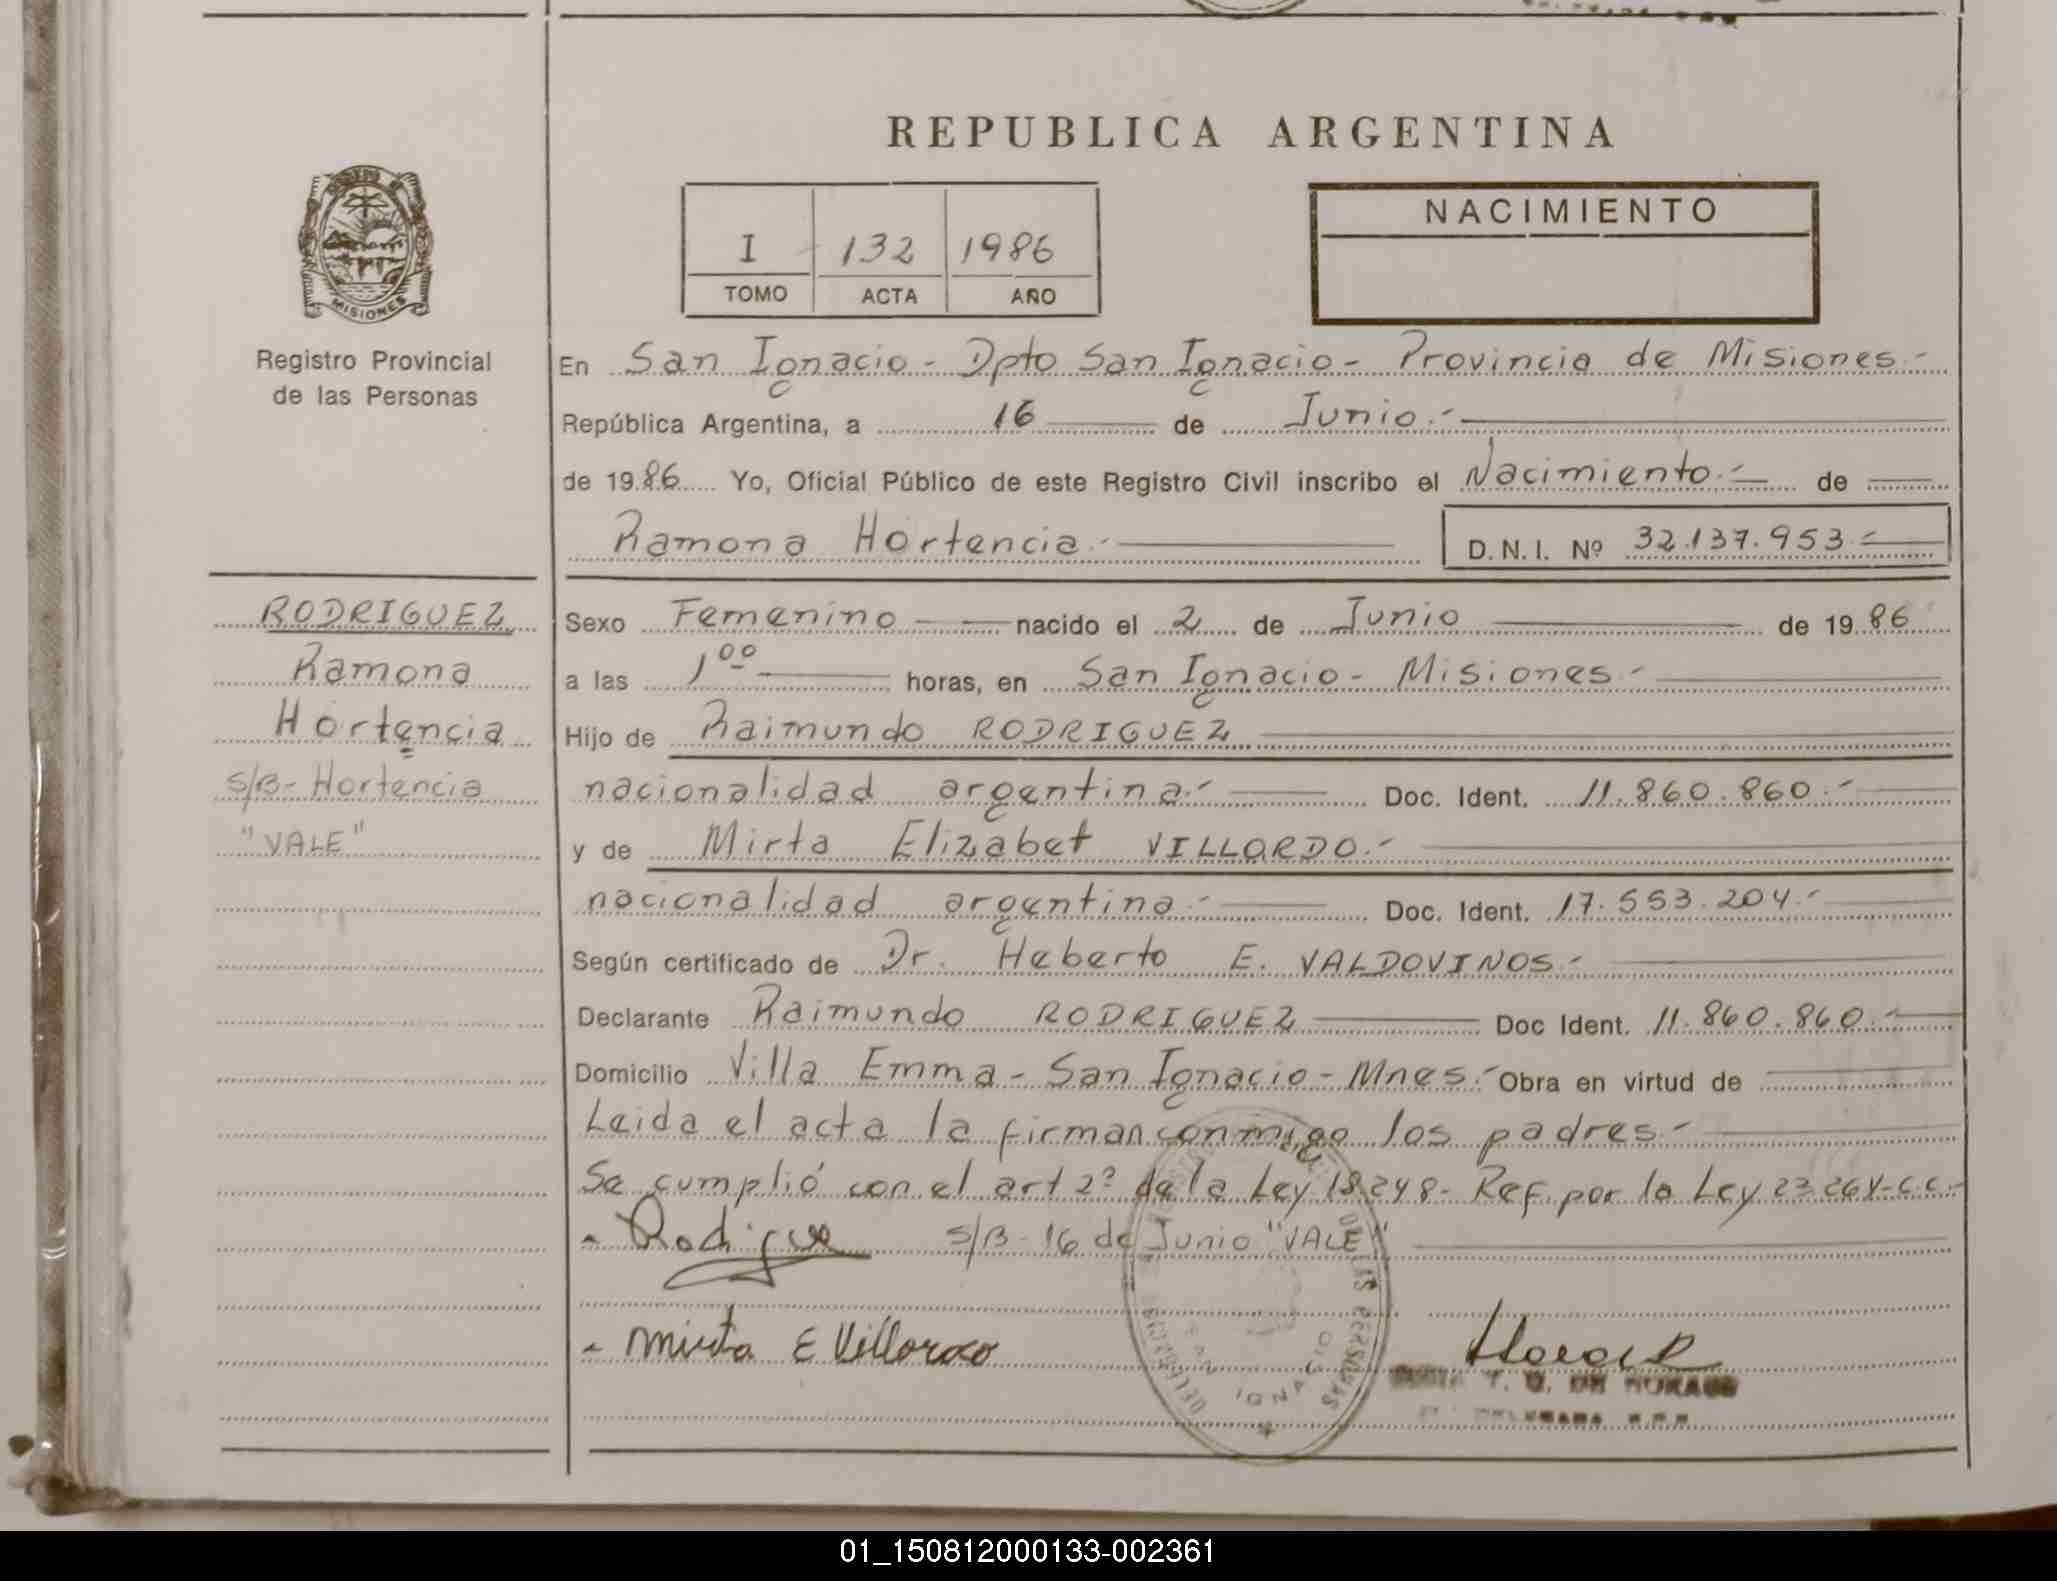 REPUBLICA ARGENTINA
MISIONES
Registro Provincial
de las Personas
I 132 1986
TOMO ACTA AÑO
NACIMIENTO
En San Ignacio - Dpto San Ignacio - Provincia de Misiones.-
República Argentina, a 16 de Junio.-
de 1986 Yo, Oficial Público de este Registro Civil inscribo el Nacimiento.- de
Ramona Hortencia.- D.N.I. Nº 32.137.953.-
RODRIGUEZ
Ramona
Hortencia
S/B- Hortencia
"VALE"
Sexo Femenino nacido el 2 de Junio de 1986
a las 1 00 horas, en San Ignacio - Misiones.-
Hijo de Raimundo RODRIGUEZ
nacionalidad argentina.- Doc. Ident. 11.860.860.-
y de Mirta Elizabet VILLORDO.-
nacionalidad argentina.- Doc. Ident. 17.553.204.-
Según certificado de Dr. Heberto E. VALDOVINOS.-
Declarante Raimundo RODRIGUEZ Doc Ident. 11.860.860.-
Domicilio Villa Emma - San Ignacio - Mnes.- Obra en virtud de
Leida el acta la firman conmigo los padres.-
Se cumplió con el art 2º de la Ley 18248- Ref. por la Ley 23264-C.C.-
- Rodrigue S/B- 16 de Junio "VALE"
- Mirta E Villordo
DE LAS PERSONAS
SAN IGNACIO
T. G. DE
01_150812000133-002361